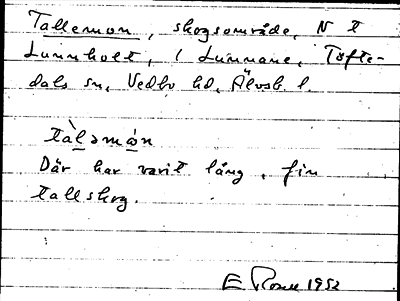 Tallemon, skogsområde, N t
Lunnholt, i Lunnane, Töfte-
dals sn, Vedbo hd, Älvsb. l.
tàlǝmón
Där har varit lång, fin
tallskog.
E. 1952